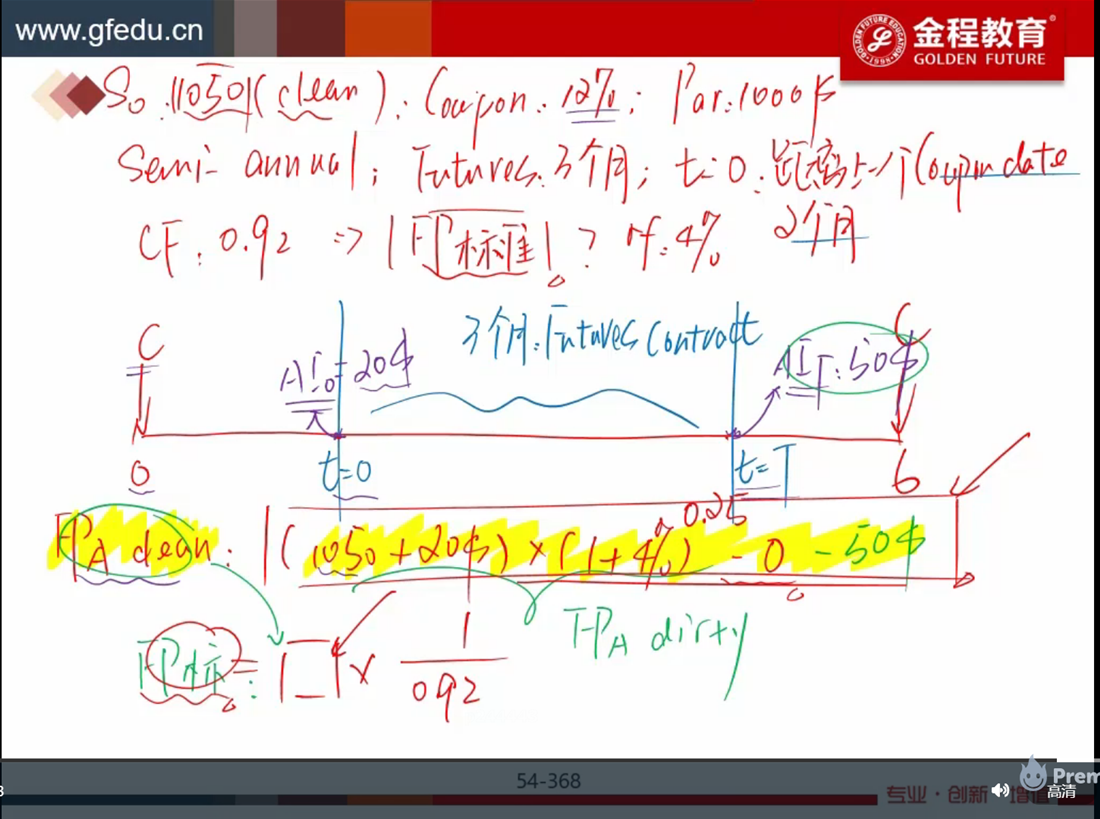 www.gfedu.cn
金程教育
GOLDEN FUTURE
S₀: 1050 (clean); Coupon: 12%; Par: 1000$
Semi-annual; Futures: 3个月; t=0: 距离上一个Coupon date
CF: 0.92 => FP标准? rf: 4% 2个月
C 3个月: Futures Contract C
AI₀=20$ AI_T: 50$
0 t=0 t=T 6
FP_A clean: (1050+20$)×(1+4%)^0.25 - 0 - 50$
FP_A dirty
FP标=[ ]× 1/0.92
54-368
专业·创新·增值
Prem
高清